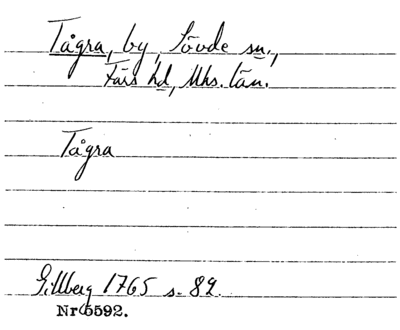 Tågra, by, Sövde sn.,
Färs hd, Mhs. län.
Tågra
Gillberg 1765 s. 89.
Nr 5592.